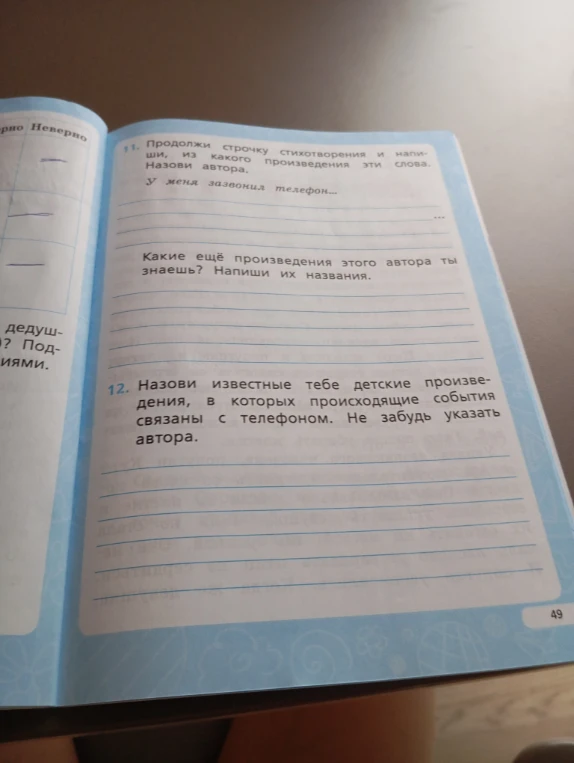 Неверно
дедуш-
? Под-
иями.
11. Продолжи строчку стихотворения и напи-
ши, из какого произведения эти слова.
Назови автора.
У меня зазвонил телефон...
...
Какие ещё произведения этого автора ты
знаешь? Напиши их названия.
12. Назови известные тебе детские произве-
дения, в которых происходящие события
связаны с телефоном. Не забудь указать
автора.
49